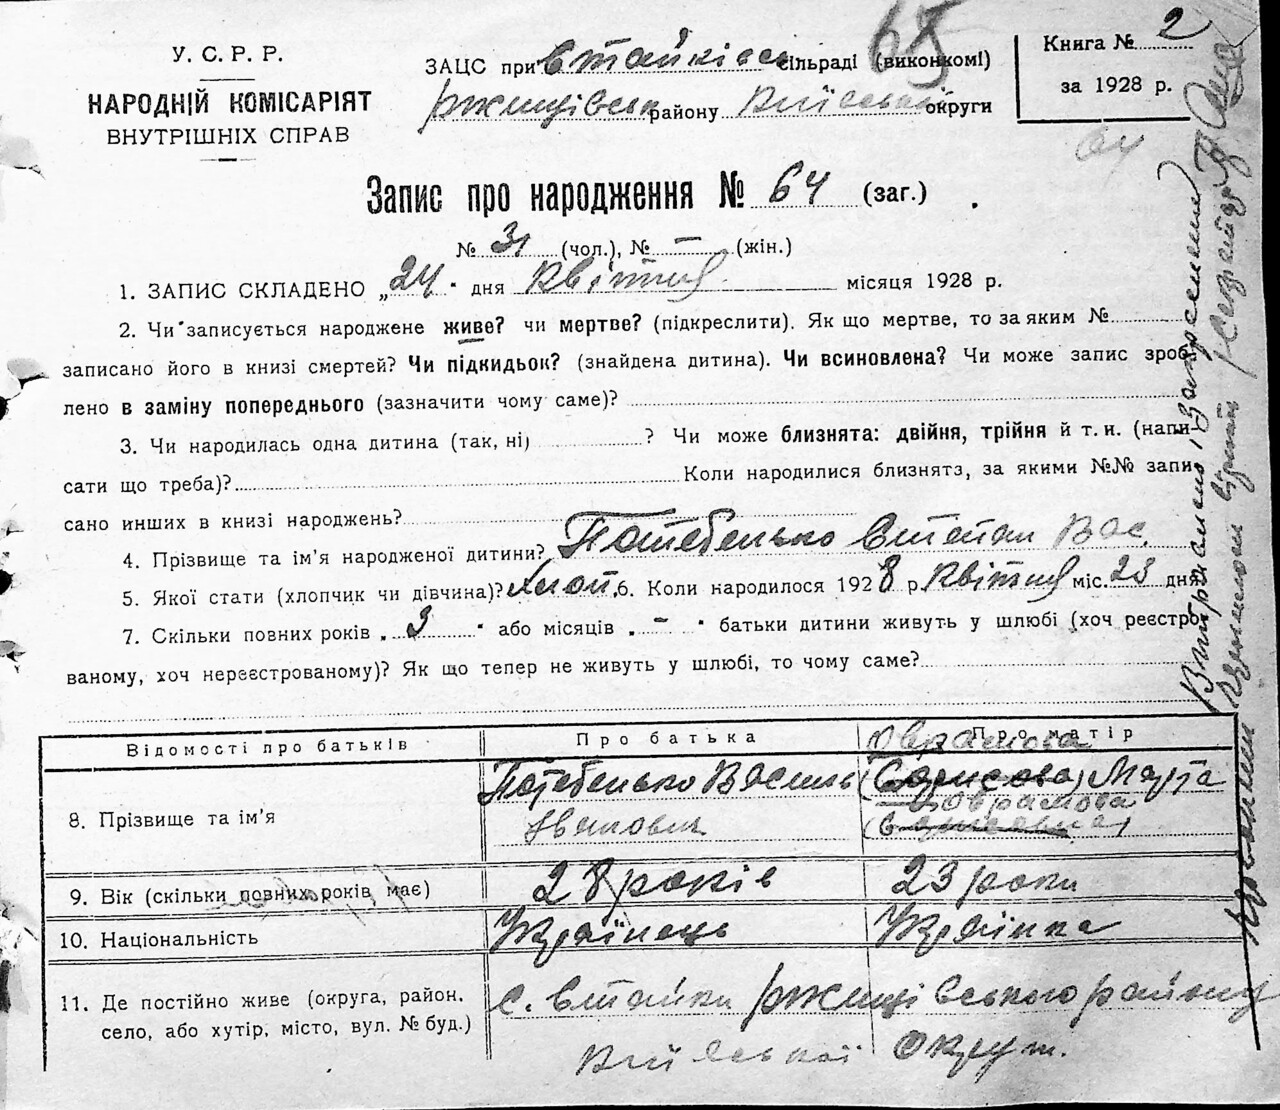 У. С. Р. Р.
НАРОДНІЙ КОМІСАРІЯТ
ВНУТРІШНІХ СПРАВ
ЗАЦС при Стайківськ сільраді (виконкомі)
Ржищівськ району Київської округи
65
Книга № 2
за 1928 р.
64
Запис про народження № 64 (заг.)
№ 31 (чол.), № – (жін.)
1. ЗАПИС СКЛАДЕНО „24" дня Квітня місяця 1928 р.
2. Чи записується народжене живе? чи мертве? (підкреслити). Як що мертве, то за яким №
записано його в книзі смертей? Чи підкидьок? (знайдена дитина). Чи всиновлена? Чи може запис зроб-
лено в заміну попереднього (зазначити чому саме)?
3. Чи народилась одна дитина (так, ні) ? Чи може близнята: двійня, трійня й т. и. (напи-
сати що треба)? Коли народилися близнята, за якими №№ запи-
сано инших в книзі народжень?
4. Прізвище та ім’я народженої дитини? Потебенько Степан Вас.
5. Якої стати (хлопчик чи дівчина)? Хлоп. 6. Коли народилося 1928 р. Квітня міс. 23 дня
7. Скільки повних років „3" або місяців „–" батьки дитини живуть у шлюбі (хоч реєстро-
ваному, хоч нереєстрованому)? Як що тепер не живуть у шлюбі, то чому саме?
Відомості про батьків
Про батька
Про матір
8. Прізвище та ім’я
Потебенько Василь
Іванович
Оврамова
(Борисова) Марта
Оврамова
9. Вік (скільки повних років має)
28 років
23 роки
10. Національність
Українець
Українка
11. Де постійно живе (округа, район,
село, або хутір, місто, вул. № буд.)
с. Стайки Ржищівського району
Київської Округи.